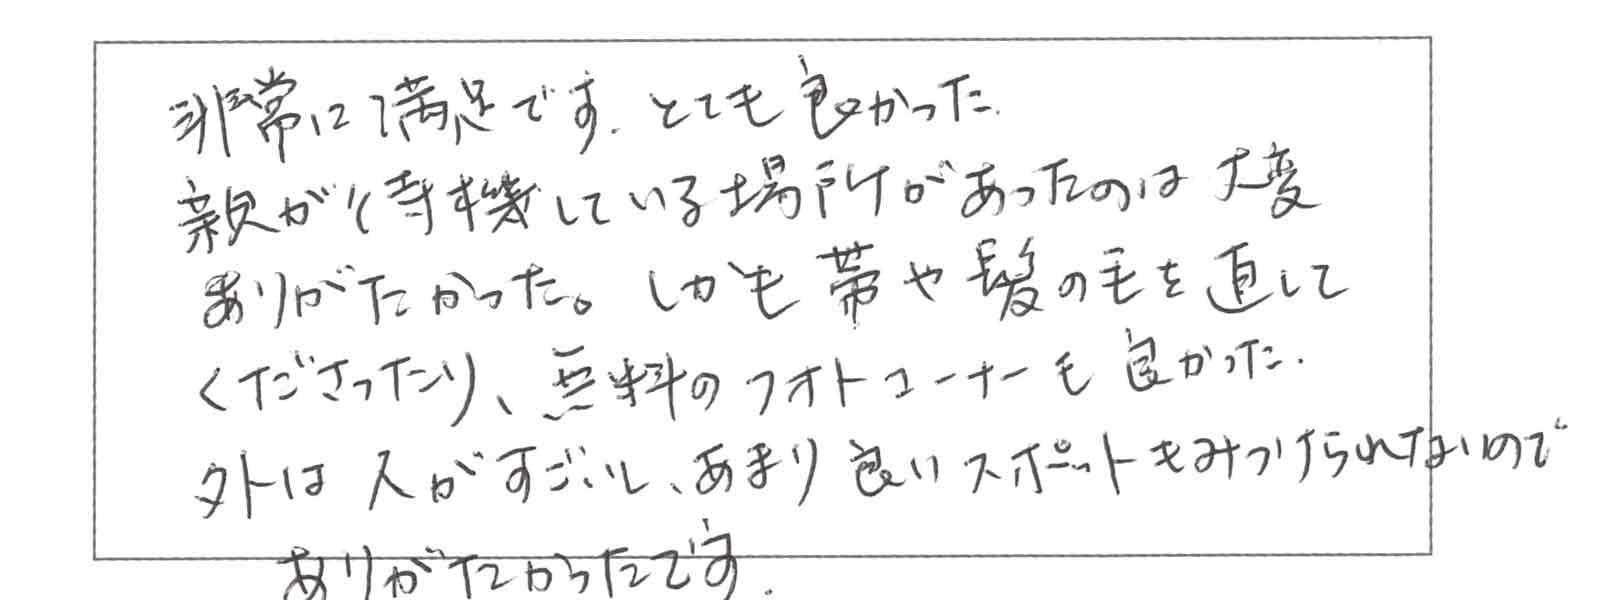 非常に満足です. とても良かった.
親が待機している場所があったのは大変
ありがたかった。しかも帯や髪の毛を直して
くださったり、無料のフォトコーナーも良かった.
外は人がすごいし、あまり良いスポットもみつけられないので
ありがたかったです.